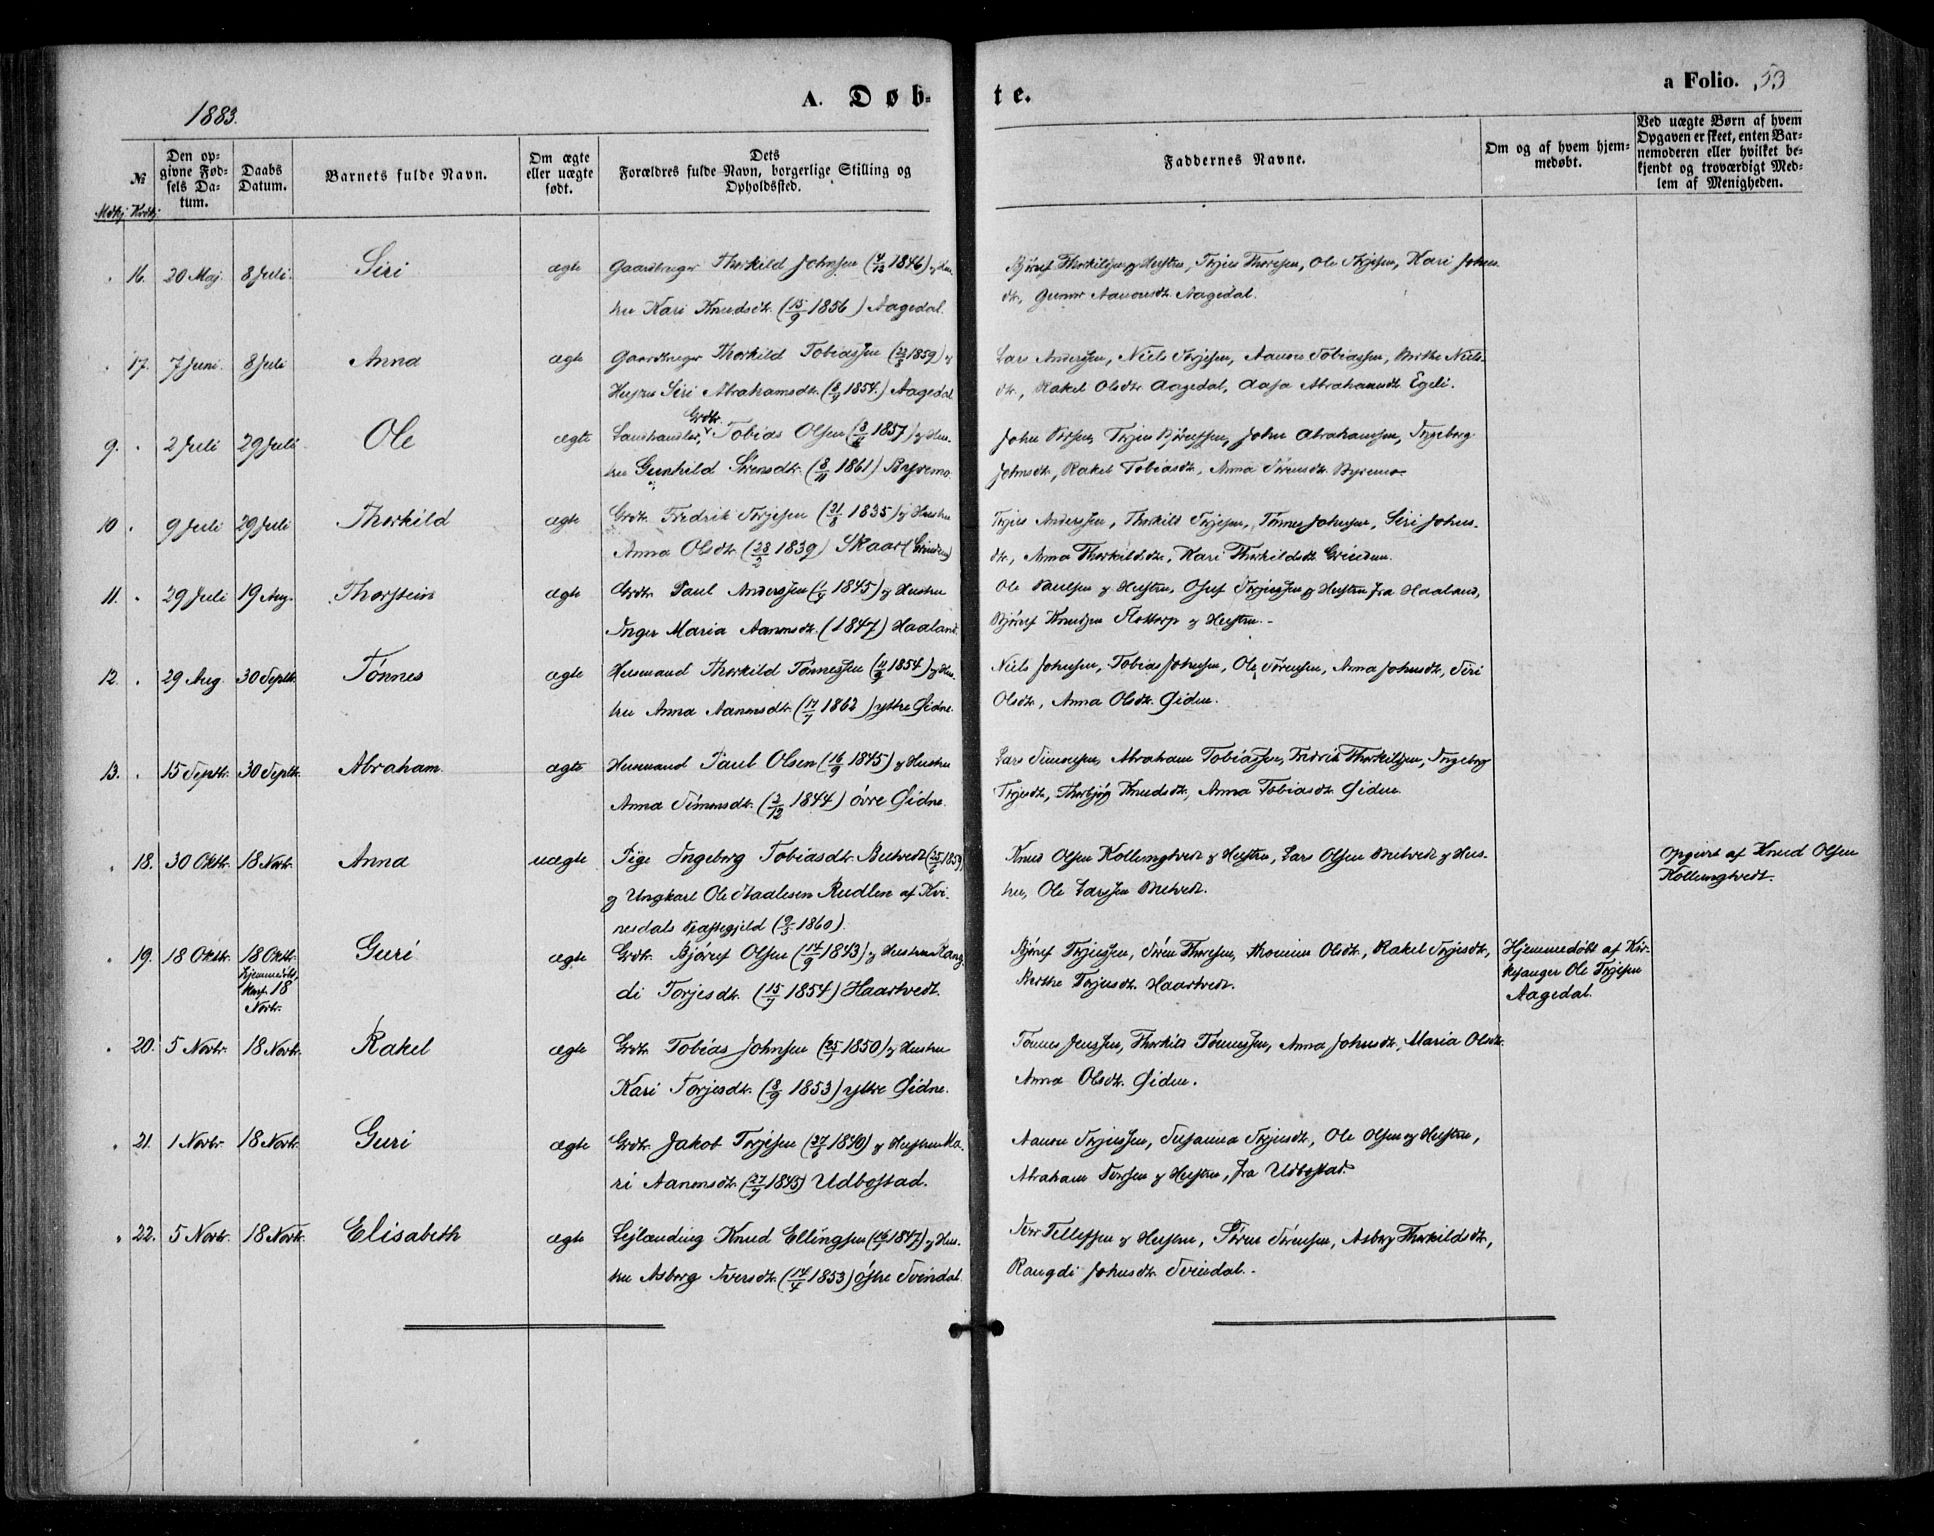 1883.
A. Døb-
te.
a Folio. 53
№
Mdkj Kvdkj
Den op-
givne Fød-
sels Da-
tum.
Daabs
Datum.
Barnets fulde Navn.
Om ægte
eller uægte
født.
Dets
Forældres fulde Navn, borgerlige Stilling og
Opholdssted.
Faddernes Navne.
Om og af hvem hjem-
medøbt.
Ved uægte Børn af hvem
Opgaven er skeet, enten Bar-
nemoderen eller hvilket be-
kjendt og troværdigt Med-
lem af Menigheden.
16. 20 Maj. 8 Juli. Siri ægte Gaardbruger Thorkild Johnsen (4/12 1846) og Hus-
tru Kari Knudsdtr. (15/9 1856) Aagedal.
Bjørnf Thorkildsen og Hustru, Terjus Thoresen, Ole Terjesen, Kari Johns-
dtr, Gunvor Aanonsdtr. Aagedal.
17. 7 Juni. 8 Juli Anna ægte Gaardbruger Thorkild Tobiassen (1859) og
Hustru Siri Abrahamsdtr. (1854.) Aagedal
Lars Anderssen, Niels Terjesen, Aanon Tobiassen, Birthe Niels-
dtr., Rakel Olsdtr Aagedal, Aasa Abrahamsdtr. Egeli.
9. 2 Juli 29 Juli Ole ægte Landhandler, Grdbr. Tobias Olsen (1857) og Hus-
tru Gunhild Sørensdtr. (8/11 1861) Byremo.
John Tersen, Terjus Bjørnssen, John Abrahamsen, Ingeborg
Johnsdtr, Rakel Tobiasdtr, Anna Sørensdtr. Byremo
10. 9 Juli 29 Juli Thorkild ægte Grdbr. Fredrik Terjesen (21/8 1835) og Hustru
Anna Olsdtr. (28/2 1839) Skaar (Grindem)
Terjus Anderssen, Thorkild Terjesen, Tønnes Johnsen, Siri Johns-
dtr, Anna Thorkildsdtr, Kari Thorkildsdtr Grindem.
11. 29 Juli 19 Aug. Thorstein ægte Grdbr. Paul Anderssen (1845) og Hustru
Inger Maria Aanensdtr. (1847) Haaland.
Ole Paulsen og Hustru, Osuf Terjussen og Hustru fra Haaland,
Bjørnf Knudsen Flottorp og Hustru.
12. 29 Aug. 30 Septbr. Tønnes ægte Husmand Thorkild Tønnessen (1854) og Hus-
tru Anna Aanonsdtr. (17/7 1862) ytre Øidne.
Niels Johnsen, Tobias Johnsen, Ole Sørensen, Anna Johnsdtr, Siri
Olsdtr, Anna Olsdtr. Øiden.
13. 15 Septbr. 30 Septbr. Abraham. ægte Husmand Paul Olsen (16/9 1845) og Hustru
Anna Simonsdtr. (2/12 1844) øvre Øidne.
Lars Simonsen, Abraham Tobiassen, Fredrik Thorkildsen, Ingeborg
Terjesdtr, Thorbjør Knudsdtr, Anna Tobiasdtr. Øiden.
18. 30 Oktbr. 18 Novbr. Anna uægte Pige Ingeborg Tobiasdtr. Birkeland
og Ungkarl Ole Staalesen Rudlen af Kvi-
nesdals Præstegjeld (1860).
Knud Olsen Kollungtvedt og Hustru, Lars Olsen og Hus-
tru, Ole Larssen
Opgivet af Knud Olsen
Kollungtvedt.
19. 18 Oktbr. 18 Oktbr. hjemmedøbt, Konf. 18 Novbr. Guri ægte Grdbr. Bjørnf Olsen (14/9 1843) og Hustru Rang-
di Torjesdtr. (15/7 1854) Haartvedt.
Bjørnf Terjussen, Søren Thoresen, Olsdtr, Rakel Terjesdtr,
Berthe Torjusdtr. Haartvedt.
Hjemmedøbt af Kir-
kesanger Ole Terjesen
Aagedal.
20. 5 Novbr. 18 Novbr. Rakel ægte Grdbr. Tobias Johnsen (25/7 1850) og Hustru
Kari Torjesdtr. (8/9 1853) ytre Øidne.
Tønnes Jenssen, Thorkild Tønnessen, Anna Johnsdtr, Maria Olsdtr.
Anna Olsdtr. Øiden.
21. 1 Novbr. 18 Novbr. Guri ægte Grdbr. Jakob Terjesen (1840) og Hustru Ma-
ri Aanensdtr. (27/9 1845) Udbøstad.
Aanon Terjussen, Susanna Terjusdtr., Ole Olsen og Hustru,
Abraham Iversen og Hustru, fra Udbøstad.
22. 5 Novbr. 18 Novbr. Elisabeth ægte Lejlænding Knud Ellingsen (1847) og Hus-
tru Asborg Iversdtr. (14/4 1853) østre Svindal.
Iver Tellefsen og Hustru, Søren Sørensen, Asborg Thorkildsdtr,
Rangdi Johnsdtr. Svindal.